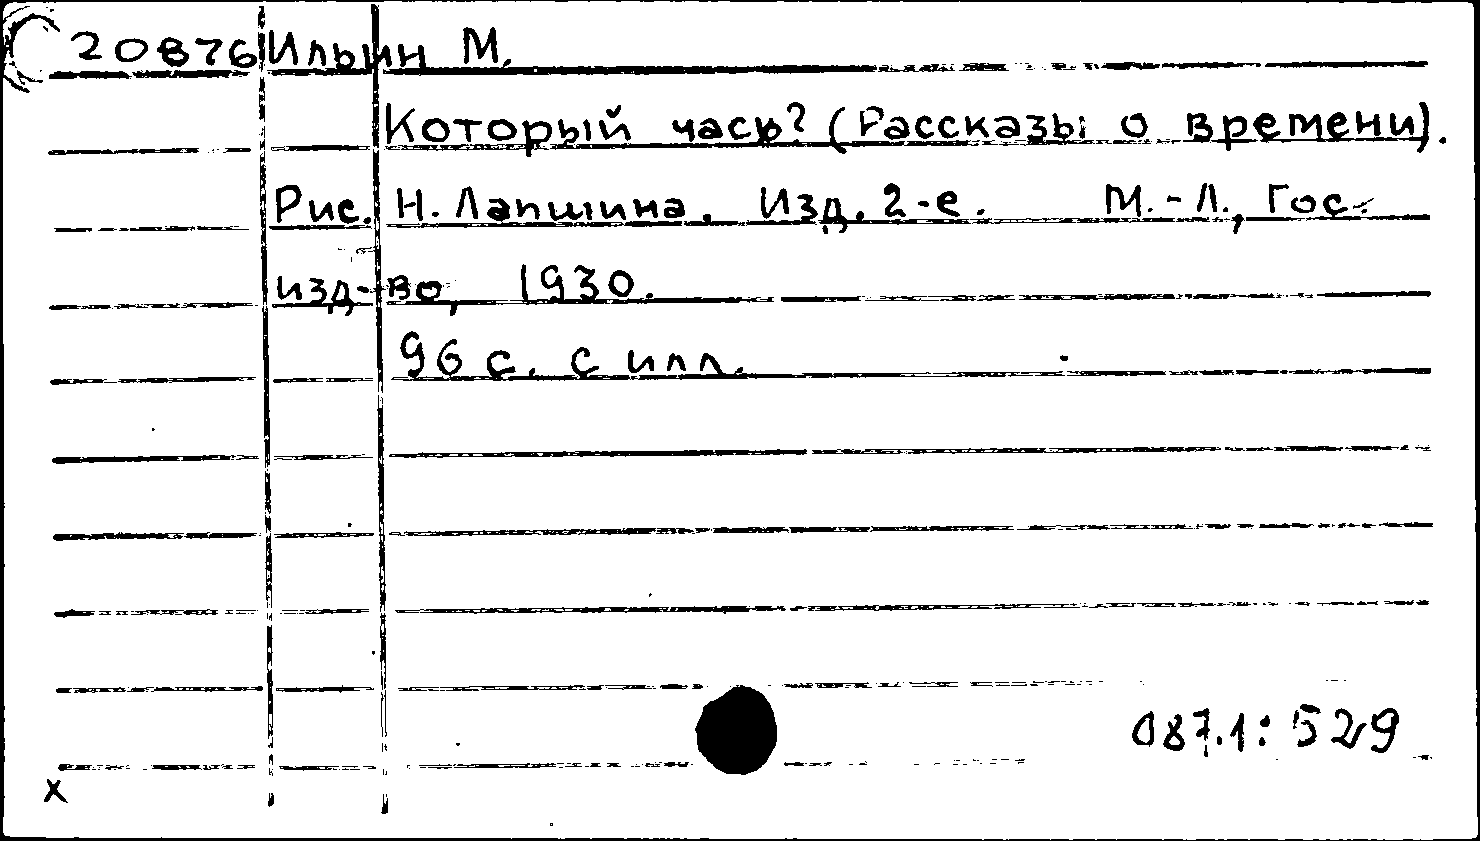 20876 Ильин М.
Который часъ? (Рассказы о времени).
Рис. Н. Лапшина. Изд. 2-е. М.-Л., Гос.
изд-во, 1930.
96 с. с илл.
087.1: 529
x